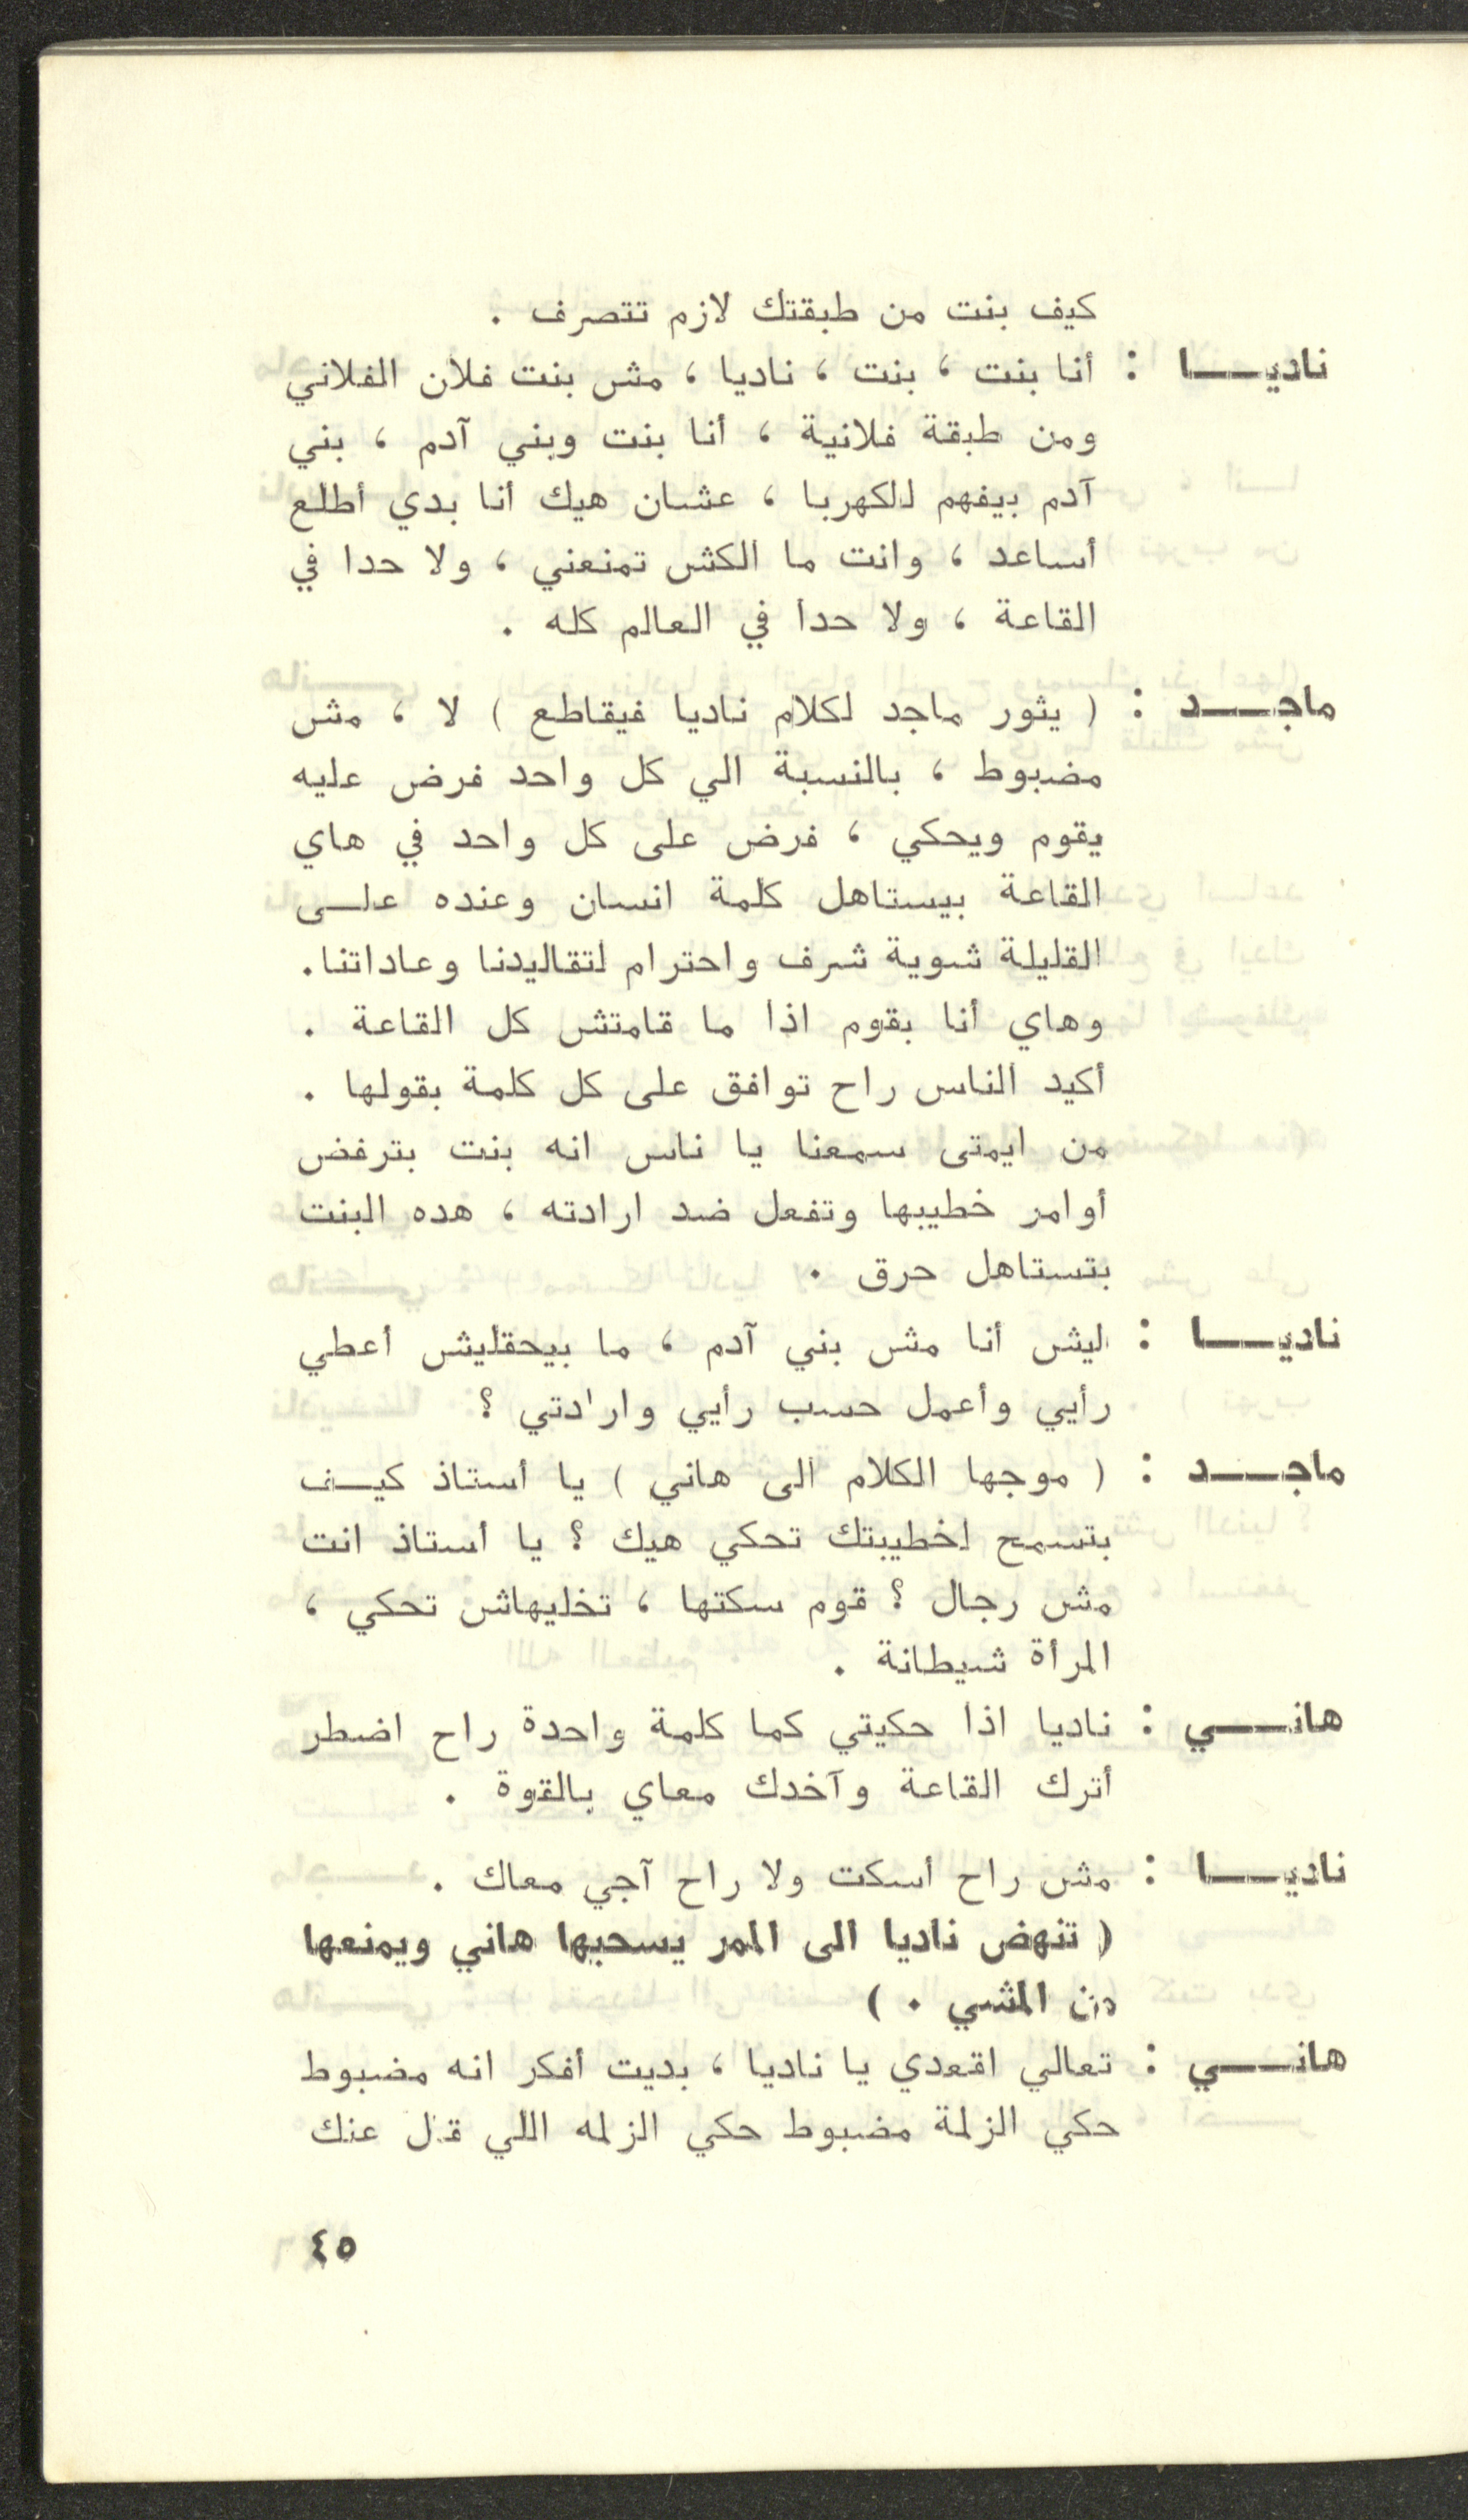 كيف بنت من طبقتك لازم تتصرف .
ناديــــا : أنا بنت ، بنت ، ناديا ، مش بنت فلان الفلاني
ومن طبقة فلانية ، أنا بنت وبني آدم ، بني
آدم بيفهم للكهربا ، عشان هيك أنا بدي أطلع
أساعد ، وانت ما الكش تمنعني ، ولا حدا في
القاعة ، ولا حدا في العالم كله .
ماجــــد : ( يثور ماجد لكلام ناديا فيقاطع ) لا ، مش
مضبوط ، بالنسبة الي كل واحد فرض عليه
يقوم ويحكي ، فرض على كل واحد في هاي
القاعة بيستاهل كلمة انسان وعنده علــى
القليلة شوية شرف واحترام لتقاليدنا وعاداتنا.
وهاي أنا بقوم اذا ما قامتش كل القاعة .
أكيد الناس راح توافق على كل كلمة بقولها .
من ايمتى سمعنا يا ناس انه بنت بترفض
أوامر خطيبها وتفعل ضد ارادته ، هده البنت
بتستاهل حرق .
ناديــــا : ليش أنا مش بني آدم ، ما بيحقليش أعطي
رأيي وأعمل حسب رأيي وارادتي ؟
ماجــــد : ( موجها الكلام الى هاني ) يا أستاذ كيــف
بتسمح لخطيبتك تحكي هيك ؟ يا أستاذ انت
مش رجال ؟ قوم سكتها ، تخليهاش تحكي ،
المرأة شيطانة .
هانــــي : ناديا اذا حكيتي كما كلمة واحدة راح اضطر
أترك القاعة وآخدك معاي بالقوة .
ناديــــا : مش راح أسكت ولا راح آجي معاك .
( تنهض ناديا الى الممر يسحبها هاني ويمنعها
من المشي . )
هانــــي : تعالي اقعدي يا ناديا ، بديت أفكر انه مضبوط
حكي الزلمة مضبوط حكي الزلمه اللي قال عنك
٤٥